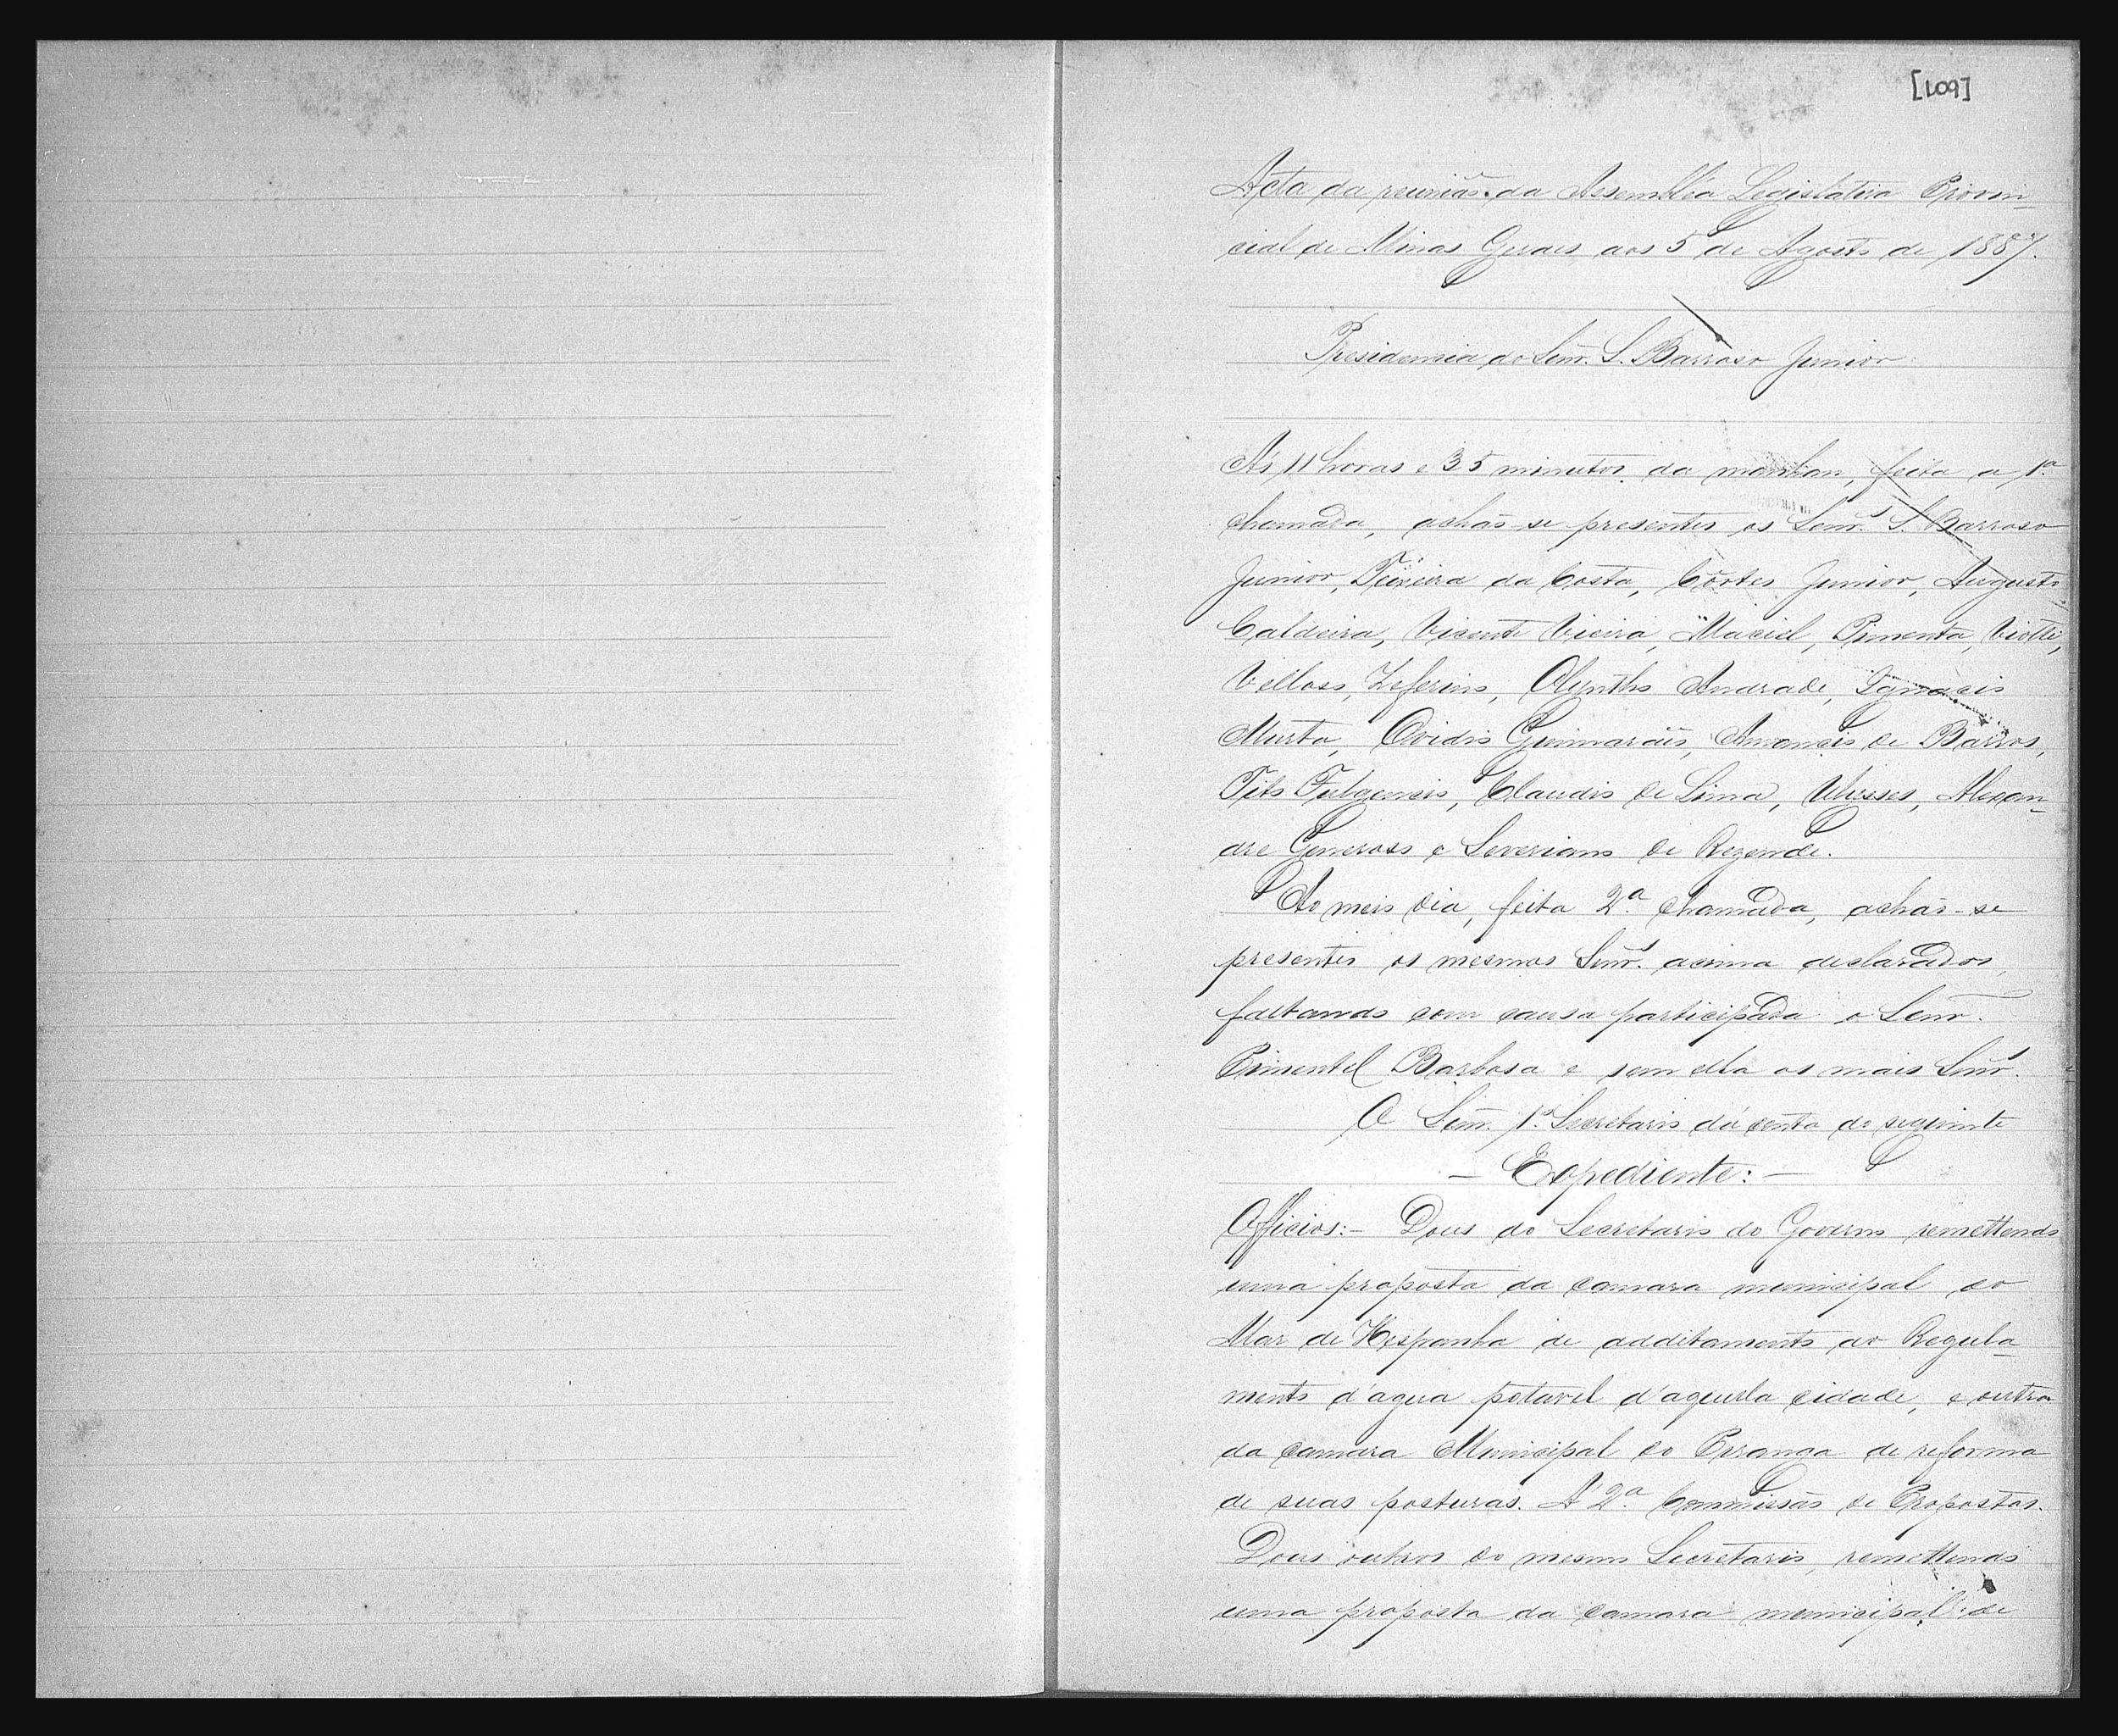 [109]
Acta da reunião da Assembléa Legislativa Provin-
cial de Minas Geraes aos 5 de Agosto de 1887.
Presidencia do Senr. S. Barroso Junior
Ás 11 horas e 35 minutos da manhan, feita a 1ª
chamada, achão-se presentes os Senrs. S. Barroso
Junior, Teixeira da Costa, Côrtes Junior, Augusto
Caldeira, Vicente Vieira, Maciel, Pimenta, Viotti,
Velloso, Zeferino, Olyntho Andrade, Ignacio
Murta, Ovidio Guimarães, Amancio de Barros,
Tito Fulgencio, Claudio de Lima, Ulysses, Alexan-
dre Generoso e Severiano de Rezende.
Ao meio dia, feita 2ª chamada, achão-se
presentes os mesmos Senrs. acima declarados,
faltando com causa participada o Senr.
Pimentel Barbosa e sem ella os mais Senrs.
O Senr. 1º Secretario dá conta do seguinte
— Expediente: —
Officios: - Dous do Secretario do Governo remettendo
uma proposta da camara municipal do
Mar de Hespanha de additamento ao Regula-
mento d'agua potavel d'aquella cidade, e outra
da camara Municipal do Piranga de reforma
de suas posturas. Á 2ª Commissão de Propostas.
Dous outros do mesmo Secretario, remettendo
uma proposta da camara municipal de